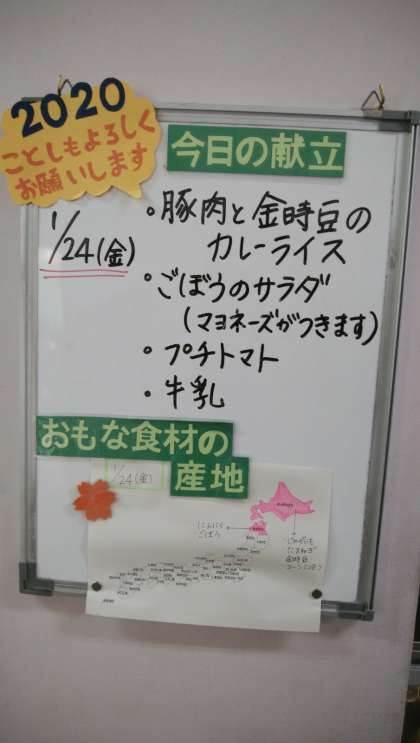 2020
ことしもよろしく
お願いします
今日の献立
1/24(金)
・豚肉と金時豆の
カレーライス
・ごぼうのサラダ
(マヨネーズがつきます)
・プチトマト
・牛乳
おもな食材の
産地
1/24(金)
にんにく
ごぼう
じゃがいも
たまねぎ
金時豆